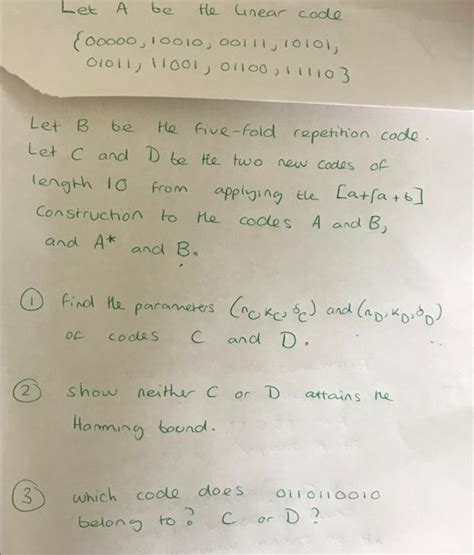 Let A be the linear code
{00000, 10010, 00111, 10101,
01011, 11001, 01100, 11110}
Let B be the five-fold repetition code.
Let C and D be the two new codes of
length 10 from applying the [a+|a+b]
construction to the codes A and B,
and A* and B.
① find the parameters (nC, KC, δC) and (nD, KD, δD)
of codes C and D.
② show neither C or D attains the
Hamming bound.
③ which code does 0110110010
belong to? C or D?